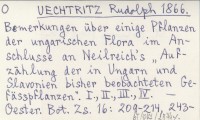 O UECHTRITZ Rudolph 1866.
Bemerkungen über einige Pflanzen
der ungarischen Flora im An-
schlusse an Neilreich's „Auf-
zählung der in Ungarn und
Slavonien bisher beobachteten Ge-
fässpflanzen". I., II., III., IV. —
Oester. Bot. Zs. 16: 209-214, 243-